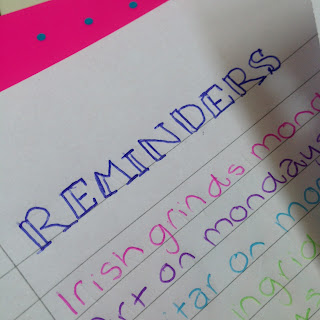 REMINDERS
Irish grinds mond
Art on mondays
itar on mon
ingrid